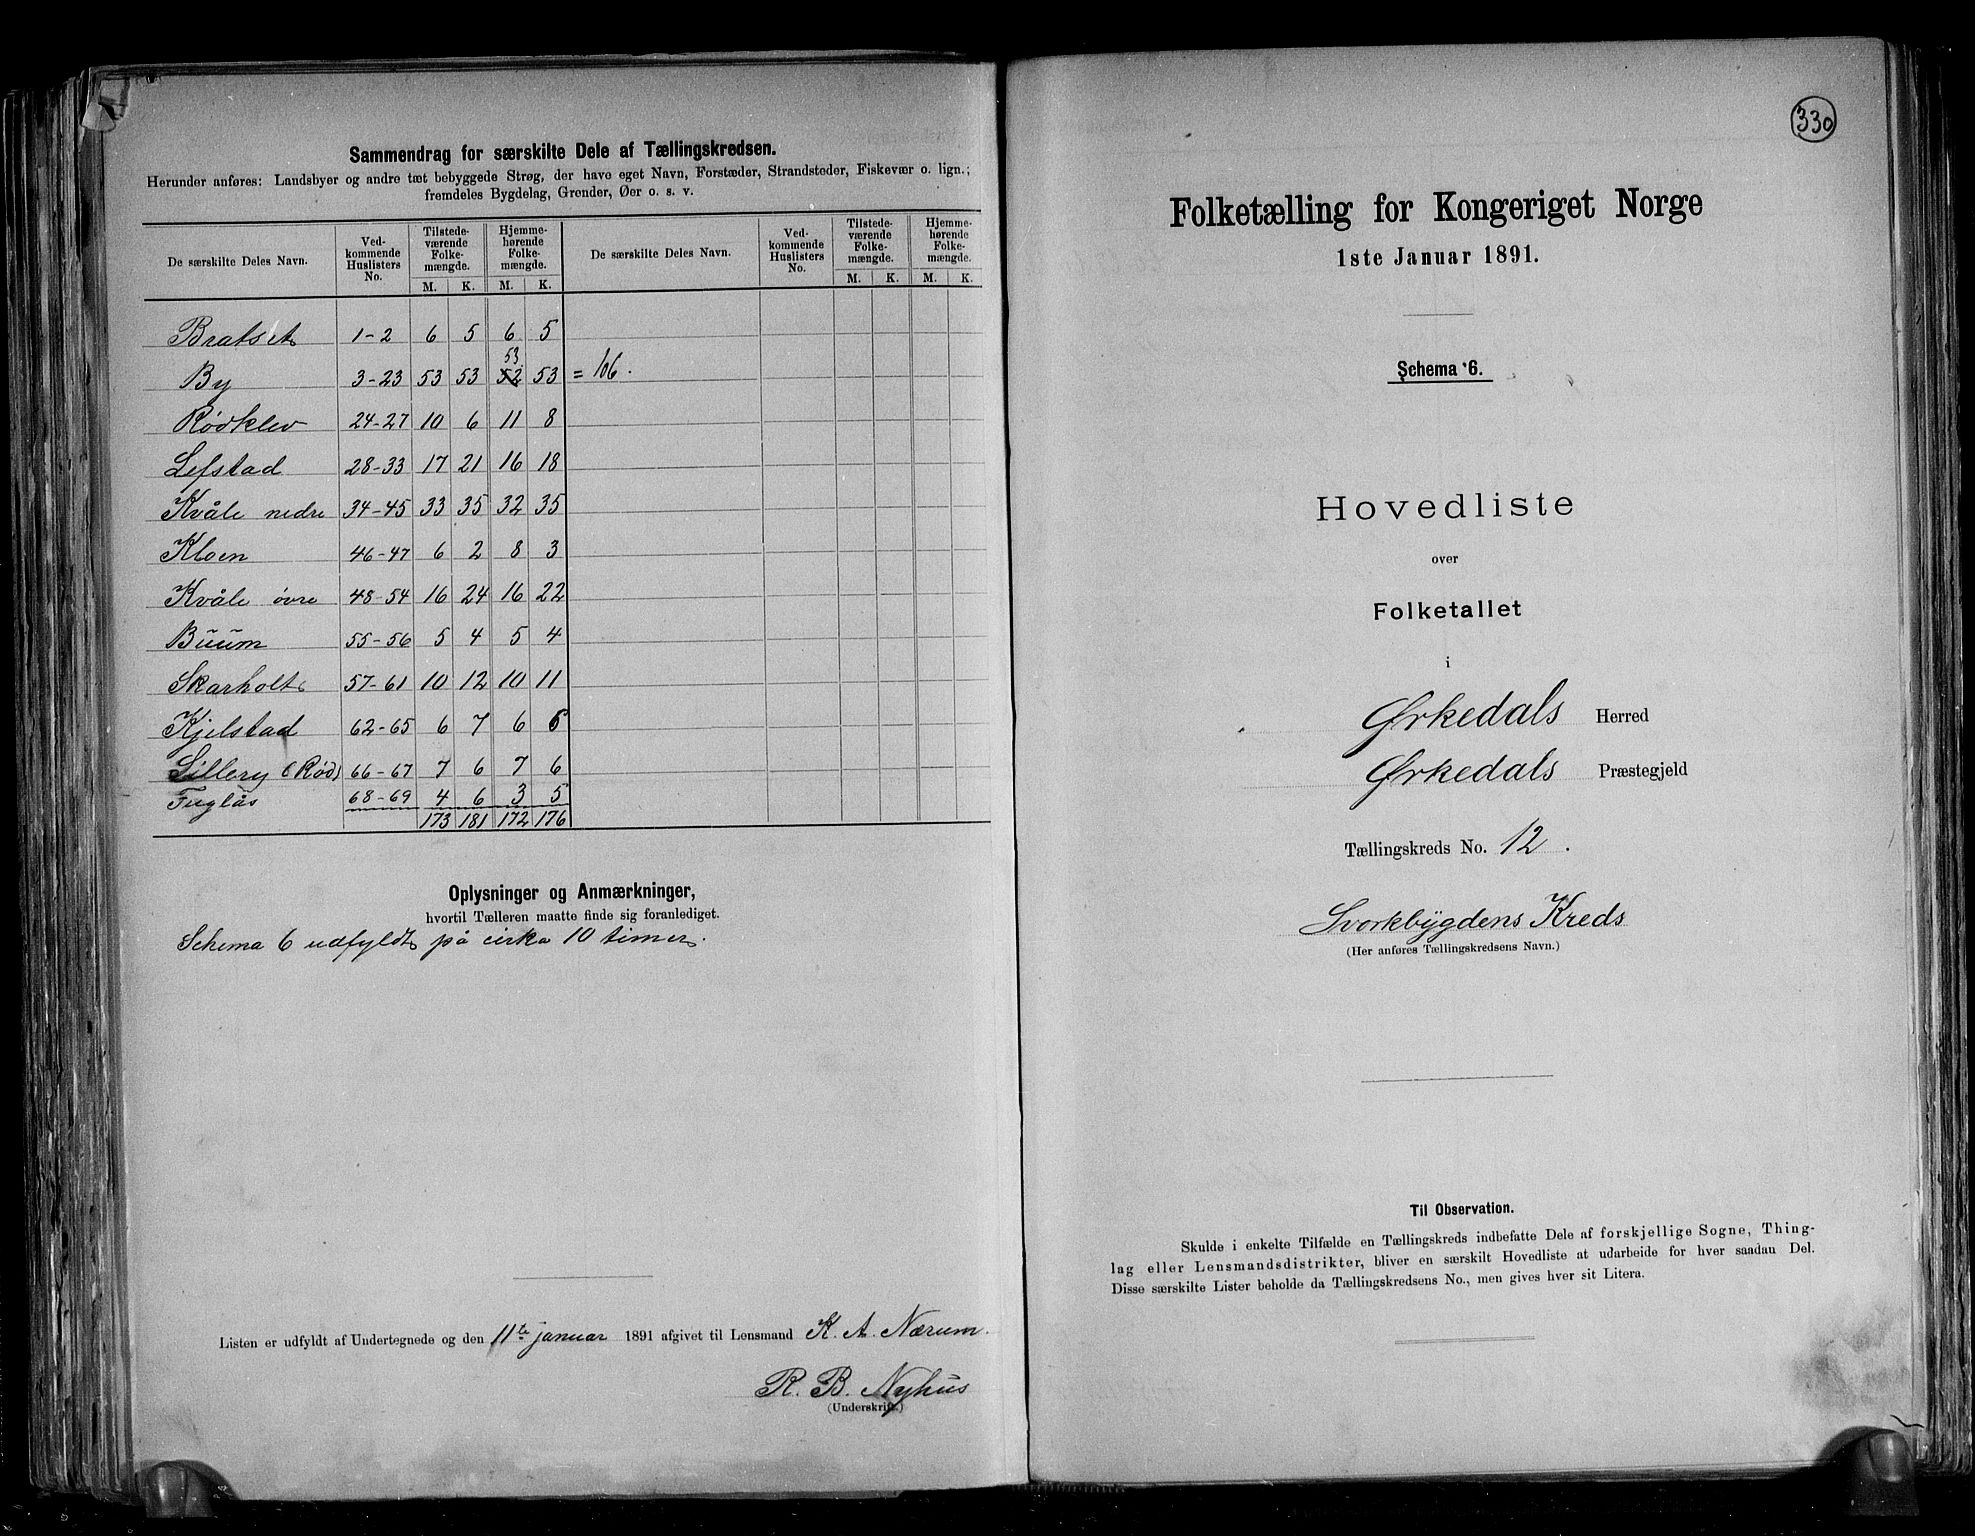 Sammendrag for særskilte Dele af Tællingskredsen.
Herunder anføres: Landsbyer og andre tæt bebyggede Strøg, der have eget Navn, Forstæder, Strandsteder, Fiskevær o. lign.;
fremdeles Bygdelag, Grender, Øer o. s. v.
De særskilte Deles Navn. Ved-kommende Huslisters No. Tilstede-værende Folke-mængde. M. K. Hjemme-hørende Folke-mængde. M. K. De særskilte Deles Navn. Ved-kommende Huslisters No. Tilstede-værende Folke-mængde. M. K. Hjemme-hørende Folke-mængde. M. K.
Bratset 1-2 6 5 6 5
53
By 3-23 53 53 52 53 = 106.
Rødklev 24-27 10 6 11 8
Lefstad 28-33 17 21 16 18
Kvåle nedre 34-45 33 35 32 35
Kloen 46-47 6 2 8 3
Kvåle øvre 48-54 16 24 16 22
Buum 55-56 5 4 5 4
Skarholt 57-61 10 12 10 11
Kjelstad 62-65 6 7 6 6
Lillery (Rød) 66-67 7 6 7 6
Fuglås 68-69 4 6 3 5
173 181 172 176
Oplysninger og Anmærkninger,
hvortil Tælleren maatte finde sig foranlediget.
Schema 6 udfyldt på cirka 10 timer.
Listen er udfyldt af Undertegnede og den 11te januar 1891 afgivet til Lensmand K. A. Nærum.
R. B. Nyhus
(Underskrift.)
330
Folketælling for Kongeriget Norge
1ste Januar 1891.
Schema 6.
Hovedliste
over
Folketallet
i
Ørkedals Herred
Ørkedals Præstegjeld
Tællingskreds No. 12.
Svorkbygdens Kreds
(Her anføres Tællingskredsens Navn.)
Til Observation.
Skulde i enkelte Tilfælde en Tællingskreds indbefatte Dele af forskjellige Sogne, Thing-
lag eller Lensmandsdistrikter, bliver en særskilt Hovedliste at udarbeide for hver saadan Del.
Disse særskilte Lister beholde da Tællingskredsens No., men gives hver sit Litera.